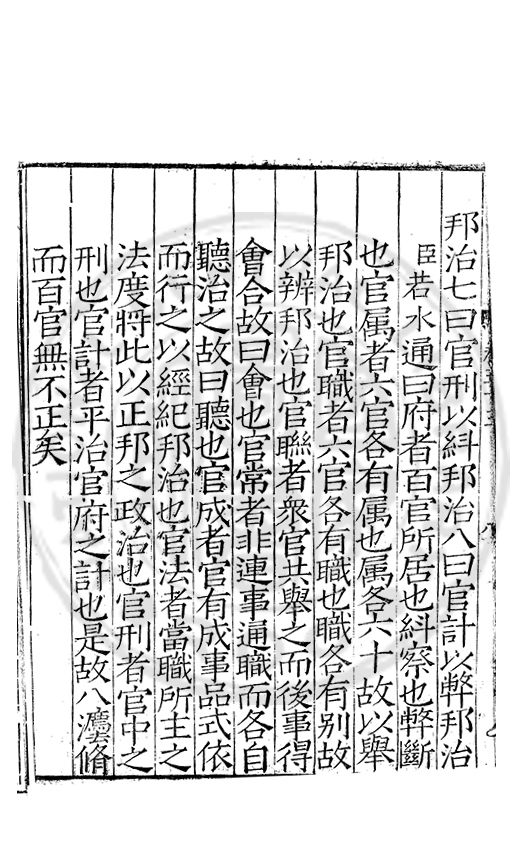 邦治七曰官刑以糾邦治八曰官計以弊邦治
臣若水通曰府者百官所居也糾察也弊斷
也官属者六官各有属也属各六十故以舉
邦治也官職者六官各有職也職各有别故
以辨邦治也官聯者衆官共舉之而後事得
會合故曰會也官常者非連事通職而各自
聽治之故曰聽也官成者官有成事品式依
而行之以經紀邦治也官法者當職所主之
法度將此以正邦之政治也官刑者官中之
刑也官計者平治官府之計也是故八灋脩
而百官無不正矣